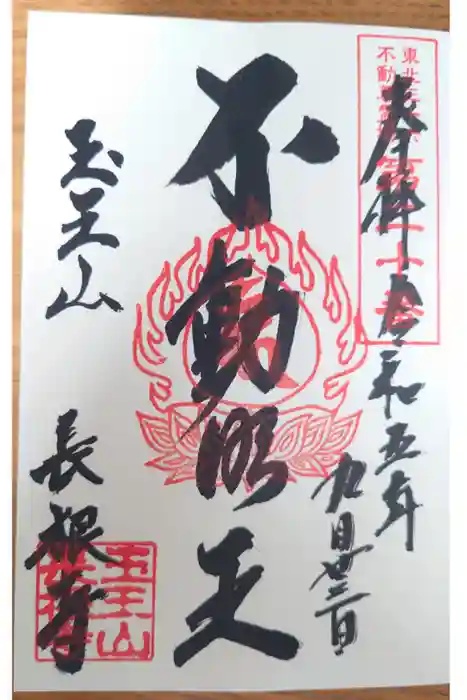 奉拝 令和五年
九月廿三日
東北三十六
不動尊霊場
第二十番
不動明王
玉王山
長根寺
玉王山
長根寺